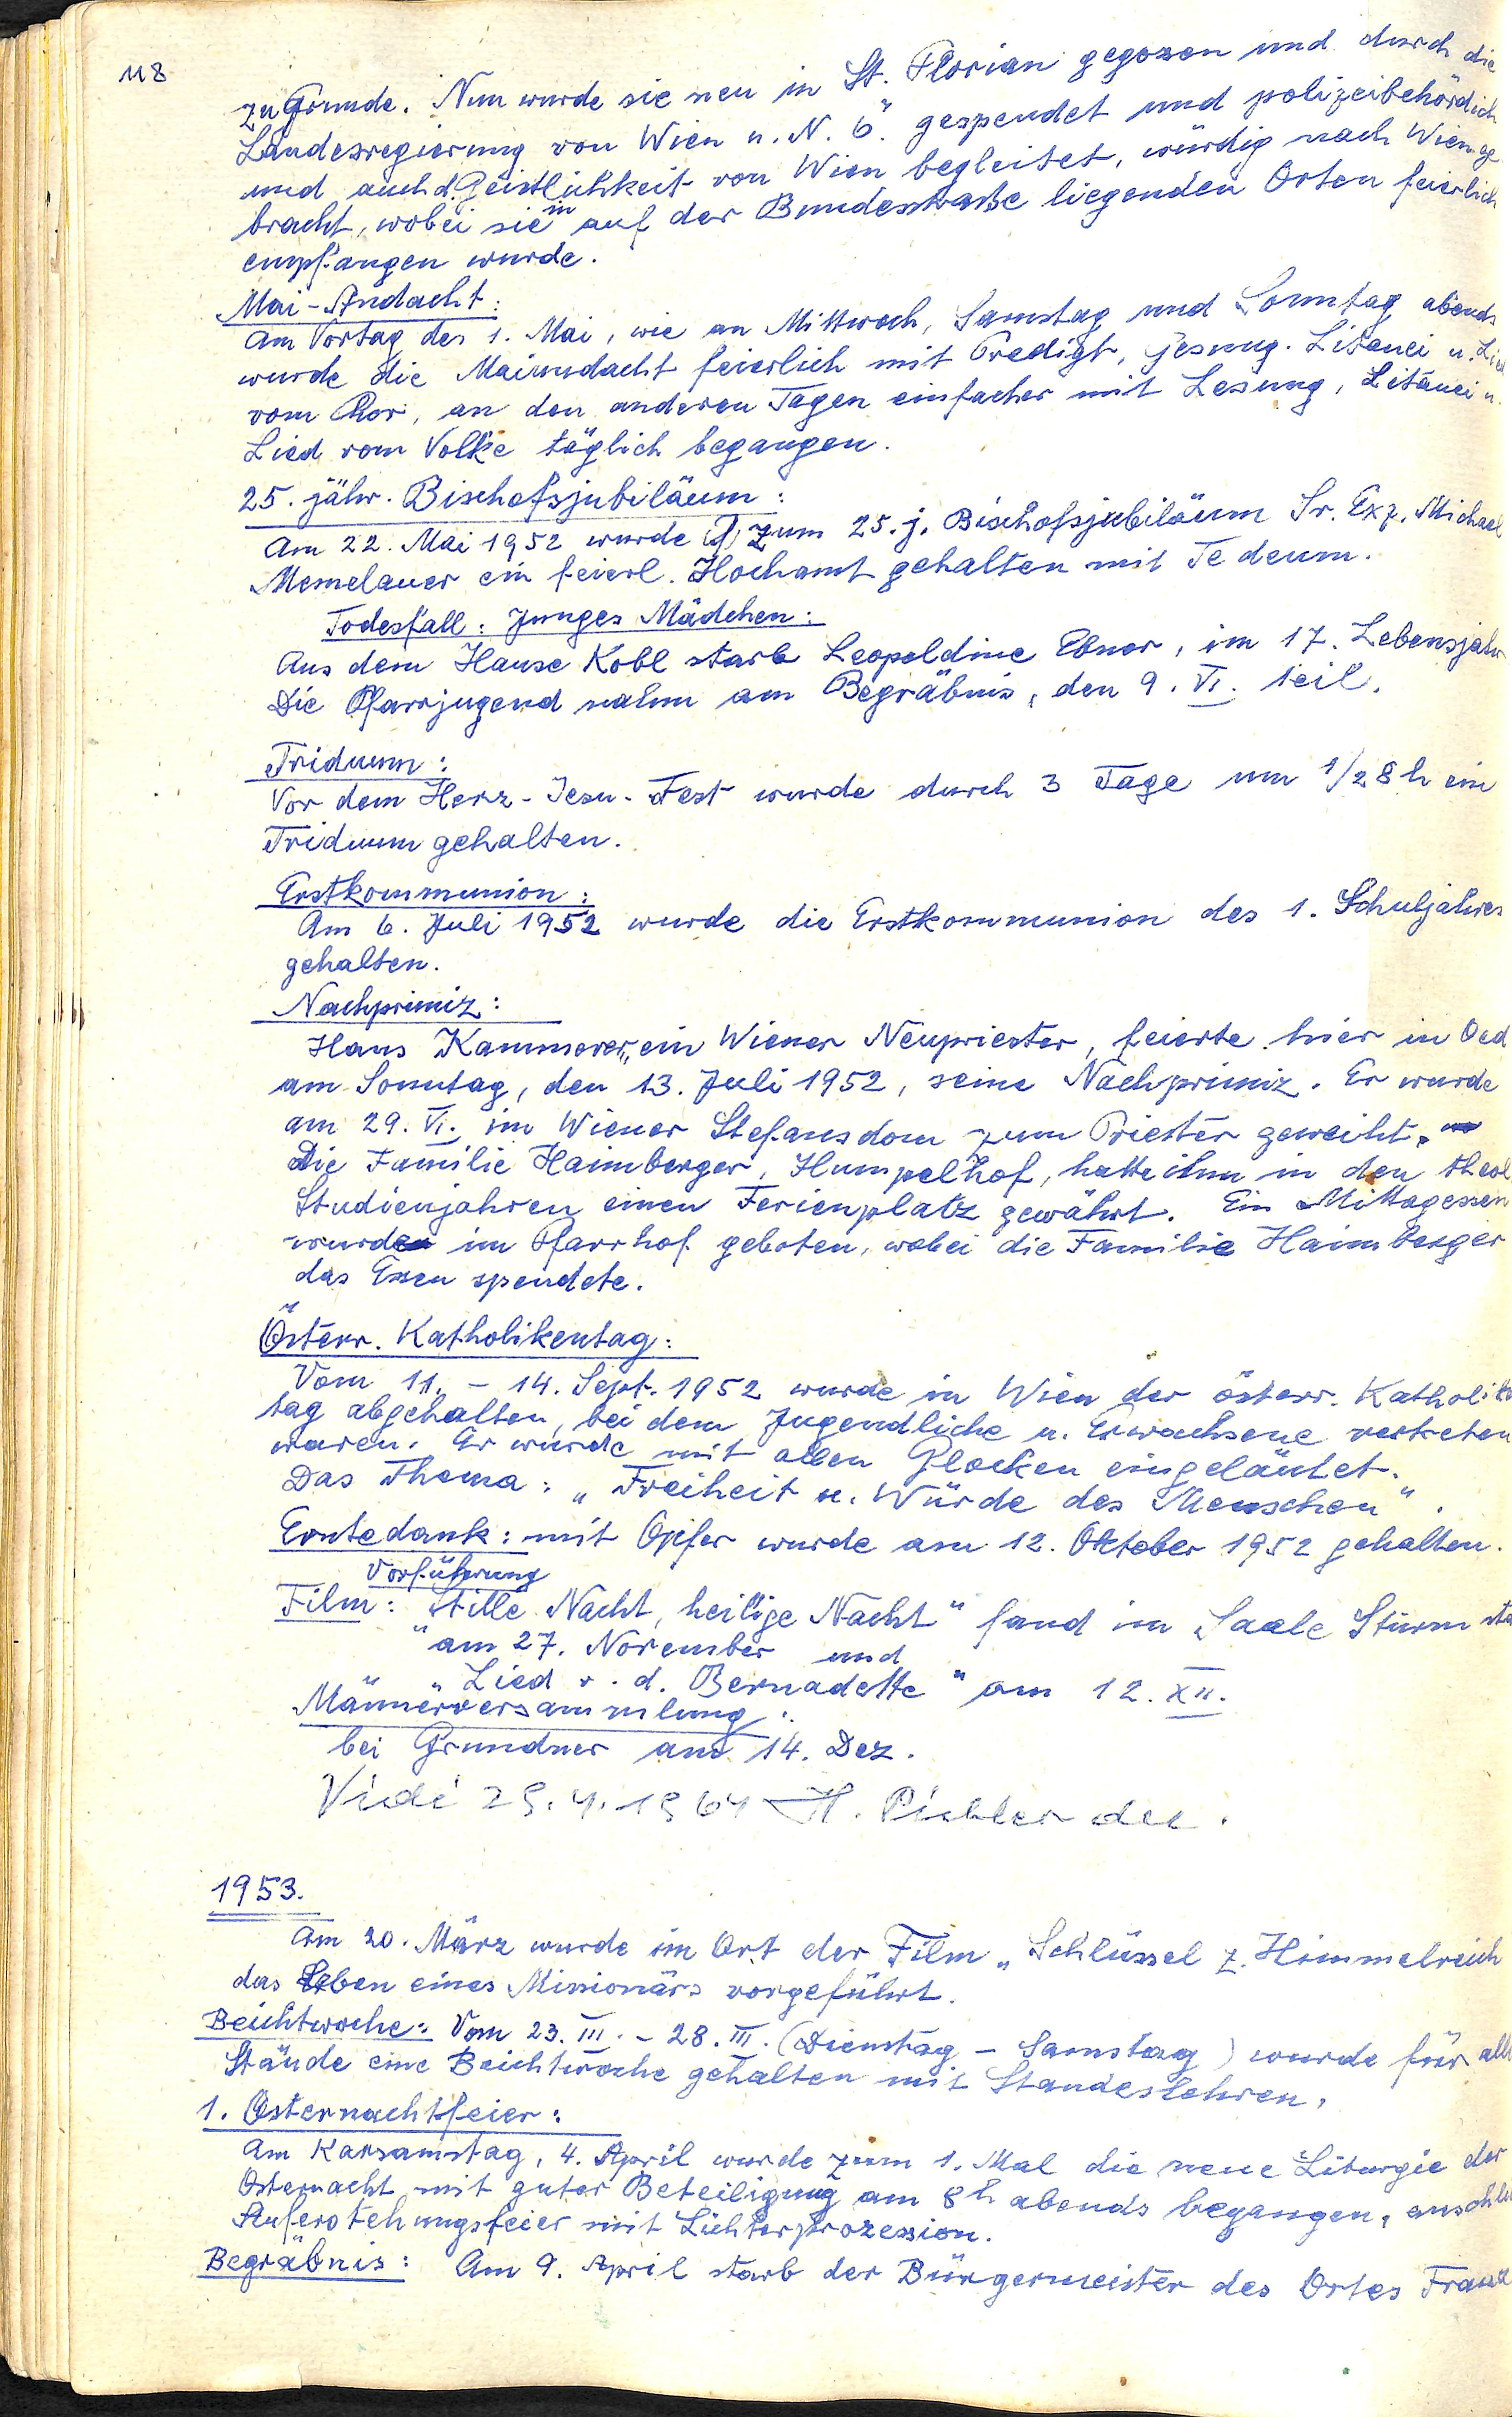 118
zu Grunde. Nun wurde sie neu in St. Florian gegossen und durch die
Landesregierung von Wien u. N. Ö. gespendet und polizeibehördlich
und auch d. Geistlichkeit von Wien begleitet, würdig nach Wien ge
bracht, wobei sie in auf der Bundesstraße liegenden Orten feierlich
empfangen wurde.
Mai-Andacht:
Am Vortag des 1. Mai, wie an Mittwoch, Samstag und Sonntag abends
wurde die Maiandacht feierlich mit Predigt, gesung. Litanei u. Lied
vom Chor, an den anderen Tagen einfacher mit Lesung, Litanei u.
Lied vom Volke täglich begangen.
25. jähr. Bischofsjubiläum:
Am 22. Mai 1952 wurde zum 25. j. Bischofsjubiläum Sr. Exz. Michael
Memelauer ein feierl. Hochamt gehalten mit Te deum.
Todesfall: Junges Mädchen:
Aus dem Hause Kobl starb Leopoldine Ebner, im 17. Lebensjahr
Die Pfarrjugend nahm am Begräbnis, den 9. VI. teil.
Triduum:
Vor dem Herz-Jesu-Fest wurde durch 3 Tage um 1/2 8 h ein
Triduum gehalten.
Erstkommunion:
Am 6. Juli 1952 wurde die Erstkommunion des 1. Schuljahres
gehalten.
Nachprimiz:
Hans Kammerer, ein Wiener Neupriester, feierte hier in Oed
am Sonntag, den 13. Juli 1952, seine Nachprimiz. Er wurde
am 29. VI. im Wiener Stefansdom zum Priester geweiht.
Die Familie Haimberger, Humpelhof, hatte ihm in den theol
Studienjahren einen Ferienplatz gewährt. Ein Mittagessen
wurde im Pfarrhof geboten, wobei die Familie Haimberger
das Essen spendete.
Österr. Katholikentag:
Vom 11. - 14. Sept. 1952 wurde in Wien der österr. Katholiken
tag abgehalten, bei dem Jugendliche u. Erwachsene vertreten
waren. Er wurde mit allen Glocken eingeläutet.
Das Thema: „Freiheit u. Würde des Menschen".
Erntedank: mit Opfer wurde am 12. Oktober 1952 gehalten.
Vorführung
Film: „Stille Nacht, heilige Nacht" fand im Saale Sturm sta
am 27. November und
„Lied v. d. Bernadette" am 12. XII.
Männerversammlung:
bei Grundner am 14. Dez.
Vidi 29.4.1964 H. Pichler dec.
1953.
Am 20. März wurde im Ort der Film „Schlüssel z. Himmelreich
das Leben eines Missionärs vorgeführt.
Beichtwoche: Vom 23. III. - 28. III. (Dienstag - Samstag) wurde für alle
Stände eine Beichtwoche gehalten mit Standeslehren.
1. Osternachtfeier:
Am Karsamstag, 4. April wurde zum 1. Mal die neue Liturgie der
Osternacht mit guter Beteiligung am 8h abends begangen, anschl
Auferstehungsfeier mit Lichterprozession.
Begräbnis: Am 9. April starb der Bürgermeister des Ortes Franz